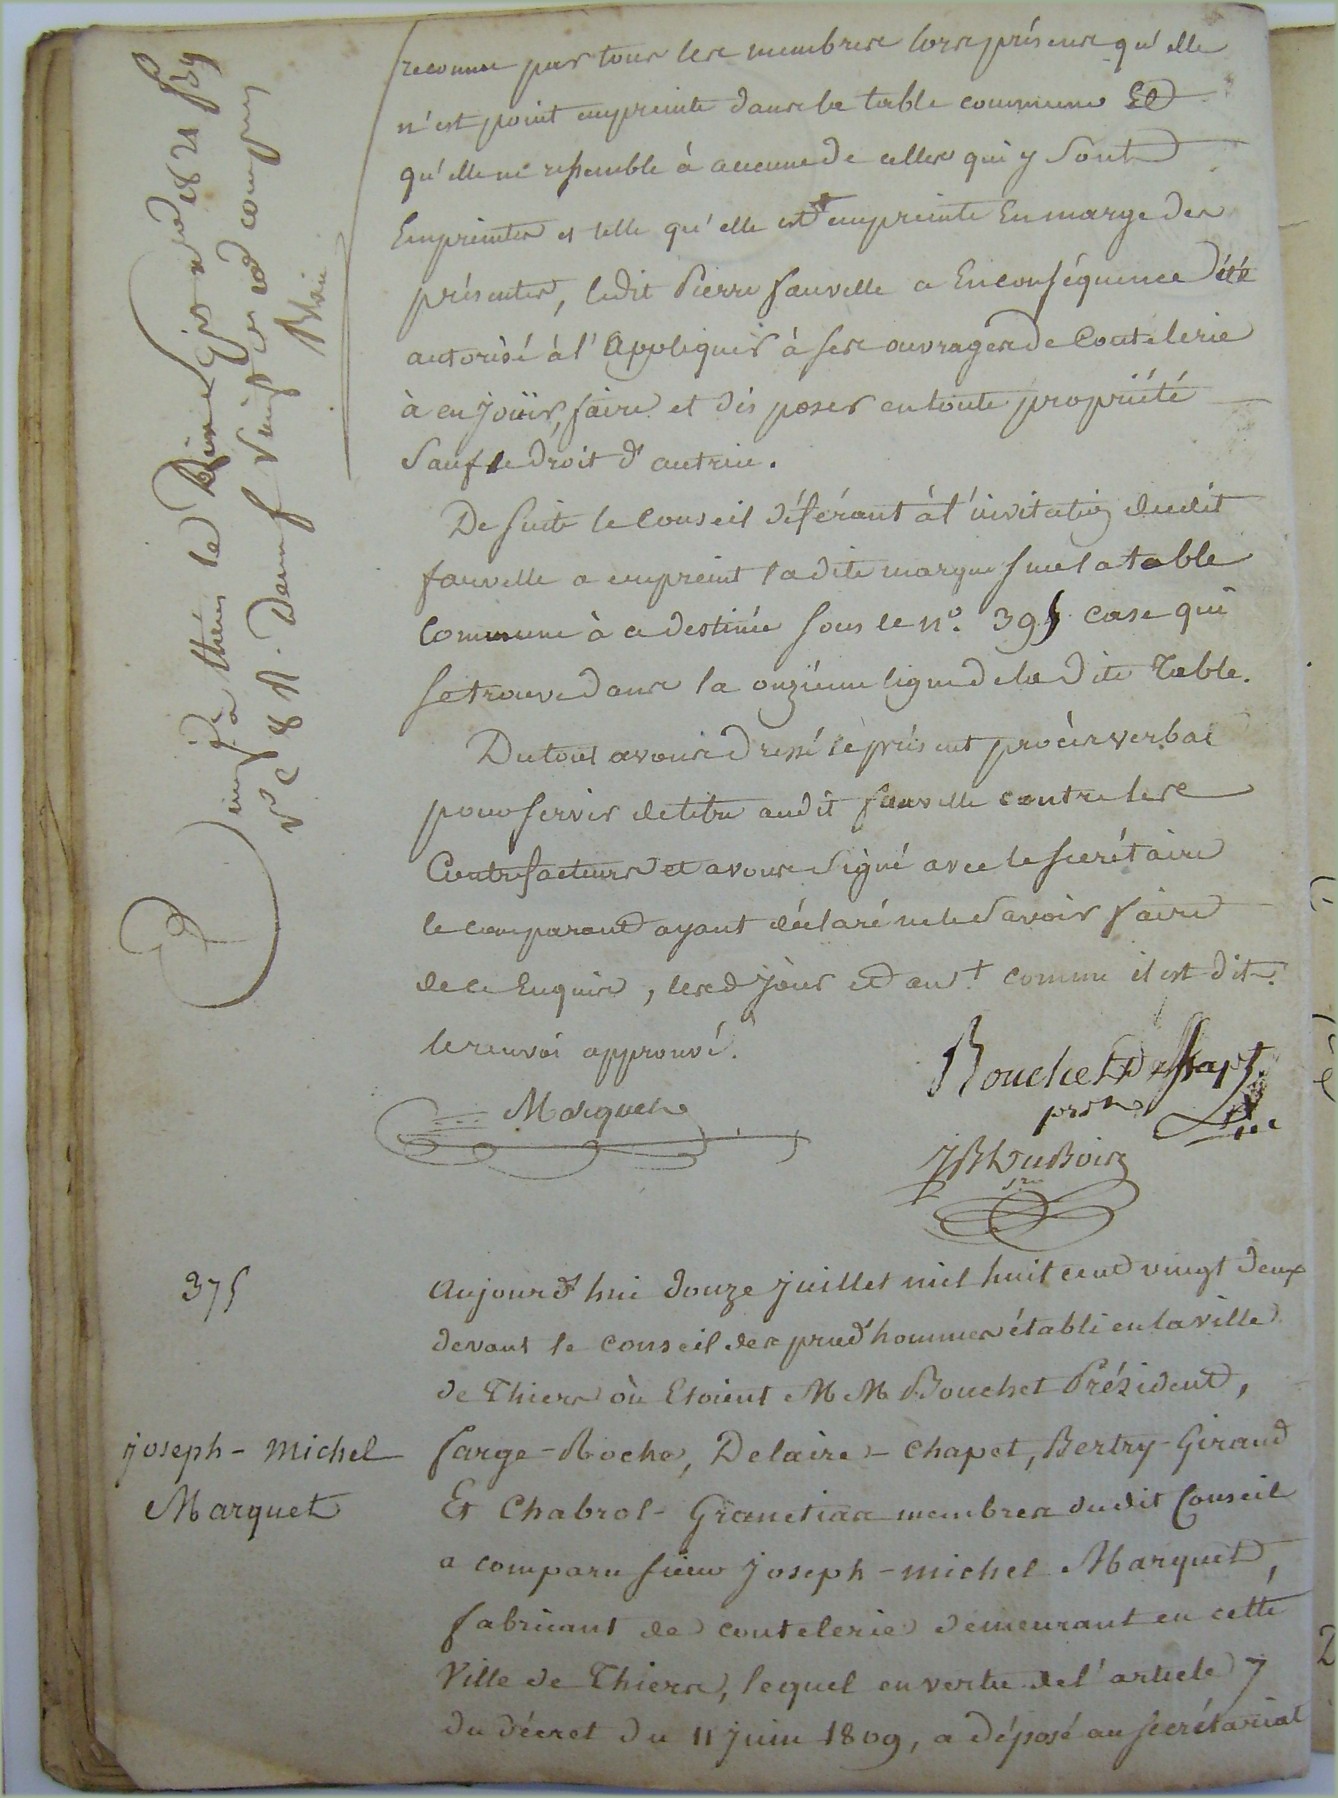 reconnu par tous les membres lors présens qu'elle
n'est point empreinte dans la table commune Et
qu'elle ne ressemble à aucune de celles qui y sont
Empreintes et telle qu'elle est empreinte En marge des
présentes, ledit Pierre fauvelle a Enconséquence été
autorisé à l'appliquer à ses ouvrages de Coutelerie
à en joüir, faire et disposer en toute propriété
sauf le droit d'autrui.
De suite le Conseil déférant à l'invitation dudit
fauvelle a empreint ladite marque sur la table
Commune à ce destinée sous le n° 395 case qui
se trouve dans la onzième ligne de la dite Table.
Du tout avons dressé le présent procès verbal
pour servir de titre audit fauvelle contre les
Contrefacteurs et avons signé avec le secrétaire
le comparant ayant déclaré ne le savoir faire
de ce Enquis, lesd jour et an + comme il est dit.
le renvoi approuvé.
Marquet
Bouchet
prdt
JB DuBoix
sre
Thiers le
1821 f°
v° c 8 R. Deux f vingt c
375
Aujourd'hui douze juillet mil huit cent vingt deux
devant le conseil des prud'hommes établi en la ville
de Thiers où Etoient MM Bouchet Président,
joseph - michel
Marquet
farge - Roche, Delaire - Chapet, Bertry - Giraud
Et Chabrol - Granetias membres dudit Conseil
a comparu sieur joseph - michel Marquet,
fabricant de coutelerie demeurant en cette
Ville de Thiers, lequel en vertu de l'article 7
du décret du 11 juin 1809, a déposé au secrétariat